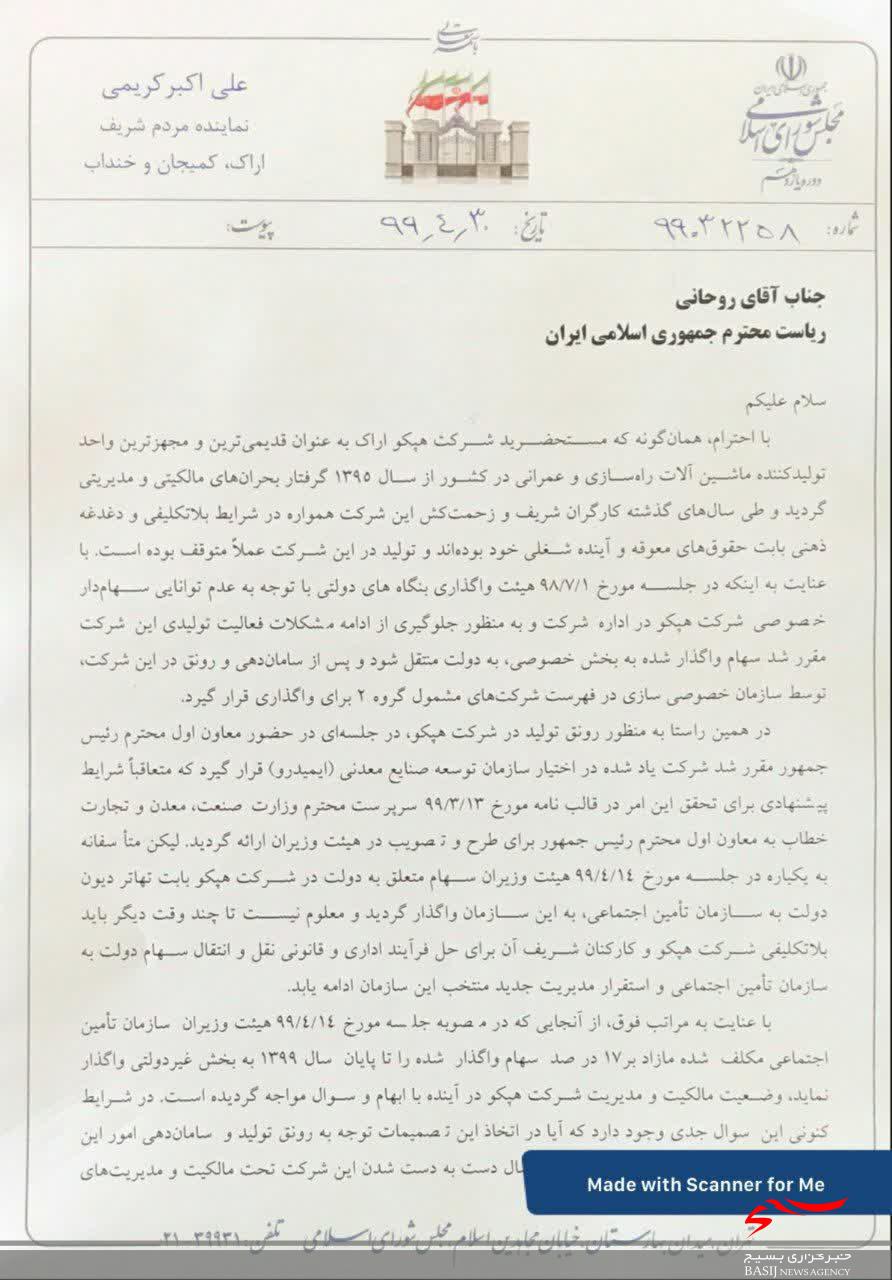 باسمه تعالی
جمهوری اسلامی ایران
مجلس شورای اسلامی
دوره یازدهم
علی اکبر کریمی
نماینده مردم شریف
اراک، کمیجان و خنداب
شماره: ۹۹۰۳۲۲۵۸ تاریخ: ۹۹٫۴٫۳۰ پیوست:
جناب آقای روحانی
ریاست محترم جمهوری اسلامی ایران
سلام علیکم
با احترام، همان‌گونه که مستحضرید شرکت هپکو اراک به عنوان قدیمی‌ترین و مجهزترین واحد
تولیدکننده ماشین آلات راه‌سازی و عمرانی در کشور از سال ۱۳۹۵ گرفتار بحران‌های مالکیتی و مدیریتی
گردید و طی سال‌های گذشته کارگران شریف و زحمت‌کش این شرکت همواره در شرایط بلاتکلیفی و دغدغه
ذهنی بابت حقوق‌های معوقه و آینده شغلی خود بوده‌اند و تولید در این شرکت عملاً متوقف بوده است. با
عنایت به اینکه در جلسه مورخ ۹۸/۷/۱ هیئت واگذاری بنگاه های دولتی با توجه به عدم توانایی سهام‌دار
خصوصی شرکت هپکو در اداره شرکت و به منظور جلوگیری از ادامه مشکلات فعالیت تولیدی این شرکت
مقرر شد سهام واگذار شده به بخش خصوصی، به دولت منتقل شود و پس از سامان‌دهی و رونق در این شرکت،
توسط سازمان خصوصی سازی در فهرست شرکت‌های مشمول گروه ۲ برای واگذاری قرار گیرد.
در همین راستا به منظور رونق تولید در شرکت هپکو، در جلسه‌ای در حضور معاون اول محترم رئیس
جمهور مقرر شد شرکت یاد شده در اختیار سازمان توسعه صنایع معدنی (ایمیدرو) قرار گیرد که متعاقباً شرایط
پیشنهادی برای تحقق این امر در قالب نامه مورخ ۹۹/۳/۱۳ سرپرست محترم وزارت صنعت، معدن و تجارت
خطاب به معاون اول محترم رئیس جمهور برای طرح و تصویب در هیئت وزیران ارائه گردید. لیکن متأسفانه
به یکباره در جلسه مورخ ۹۹/۴/۱۴ هیئت وزیران سهام متعلق به دولت در شرکت هپکو بابت تهاتر دیون
دولت به سازمان تأمین اجتماعی، به این سازمان واگذار گردید و معلوم نیست تا چند وقت دیگر باید
بلاتکلیفی شرکت هپکو و کارکنان شریف آن برای حل فرآیند اداری و قانونی نقل و انتقال سهام دولت به
سازمان تأمین اجتماعی و استقرار مدیریت جدید منتخب این سازمان ادامه یابد.
با عنایت به مراتب فوق، از آنجایی که در مصوبه جلسه مورخ ۹۹/۴/۱۴ هیئت وزیران سازمان تأمین
اجتماعی مکلف شده مازاد بر۱۷ در صد سهام واگذار شده را تا پایان سال ۱۳۹۹ به بخش غیردولتی واگذار
نماید، وضعیت مالکیت و مدیریت شرکت هپکو در آینده با ابهام و سوال مواجه گردیده است. در شرایط
کنونی این سوال جدی وجود دارد که آیا در اتخاذ این تصمیمات توجه به رونق تولید و سامان‌دهی امور این
دست به دست شدن این شرکت تحت مالکیت و مدیریت‌های
Made with Scanner for Me
تهران، میدان بهارستان، خیابان مجاهدین اسلام، مجلس شورای اسلامی تلفن: ۳۹۹۳۱-۰۲۱
خبرگزاری بسیج
BASIJ NEWS AGENCY